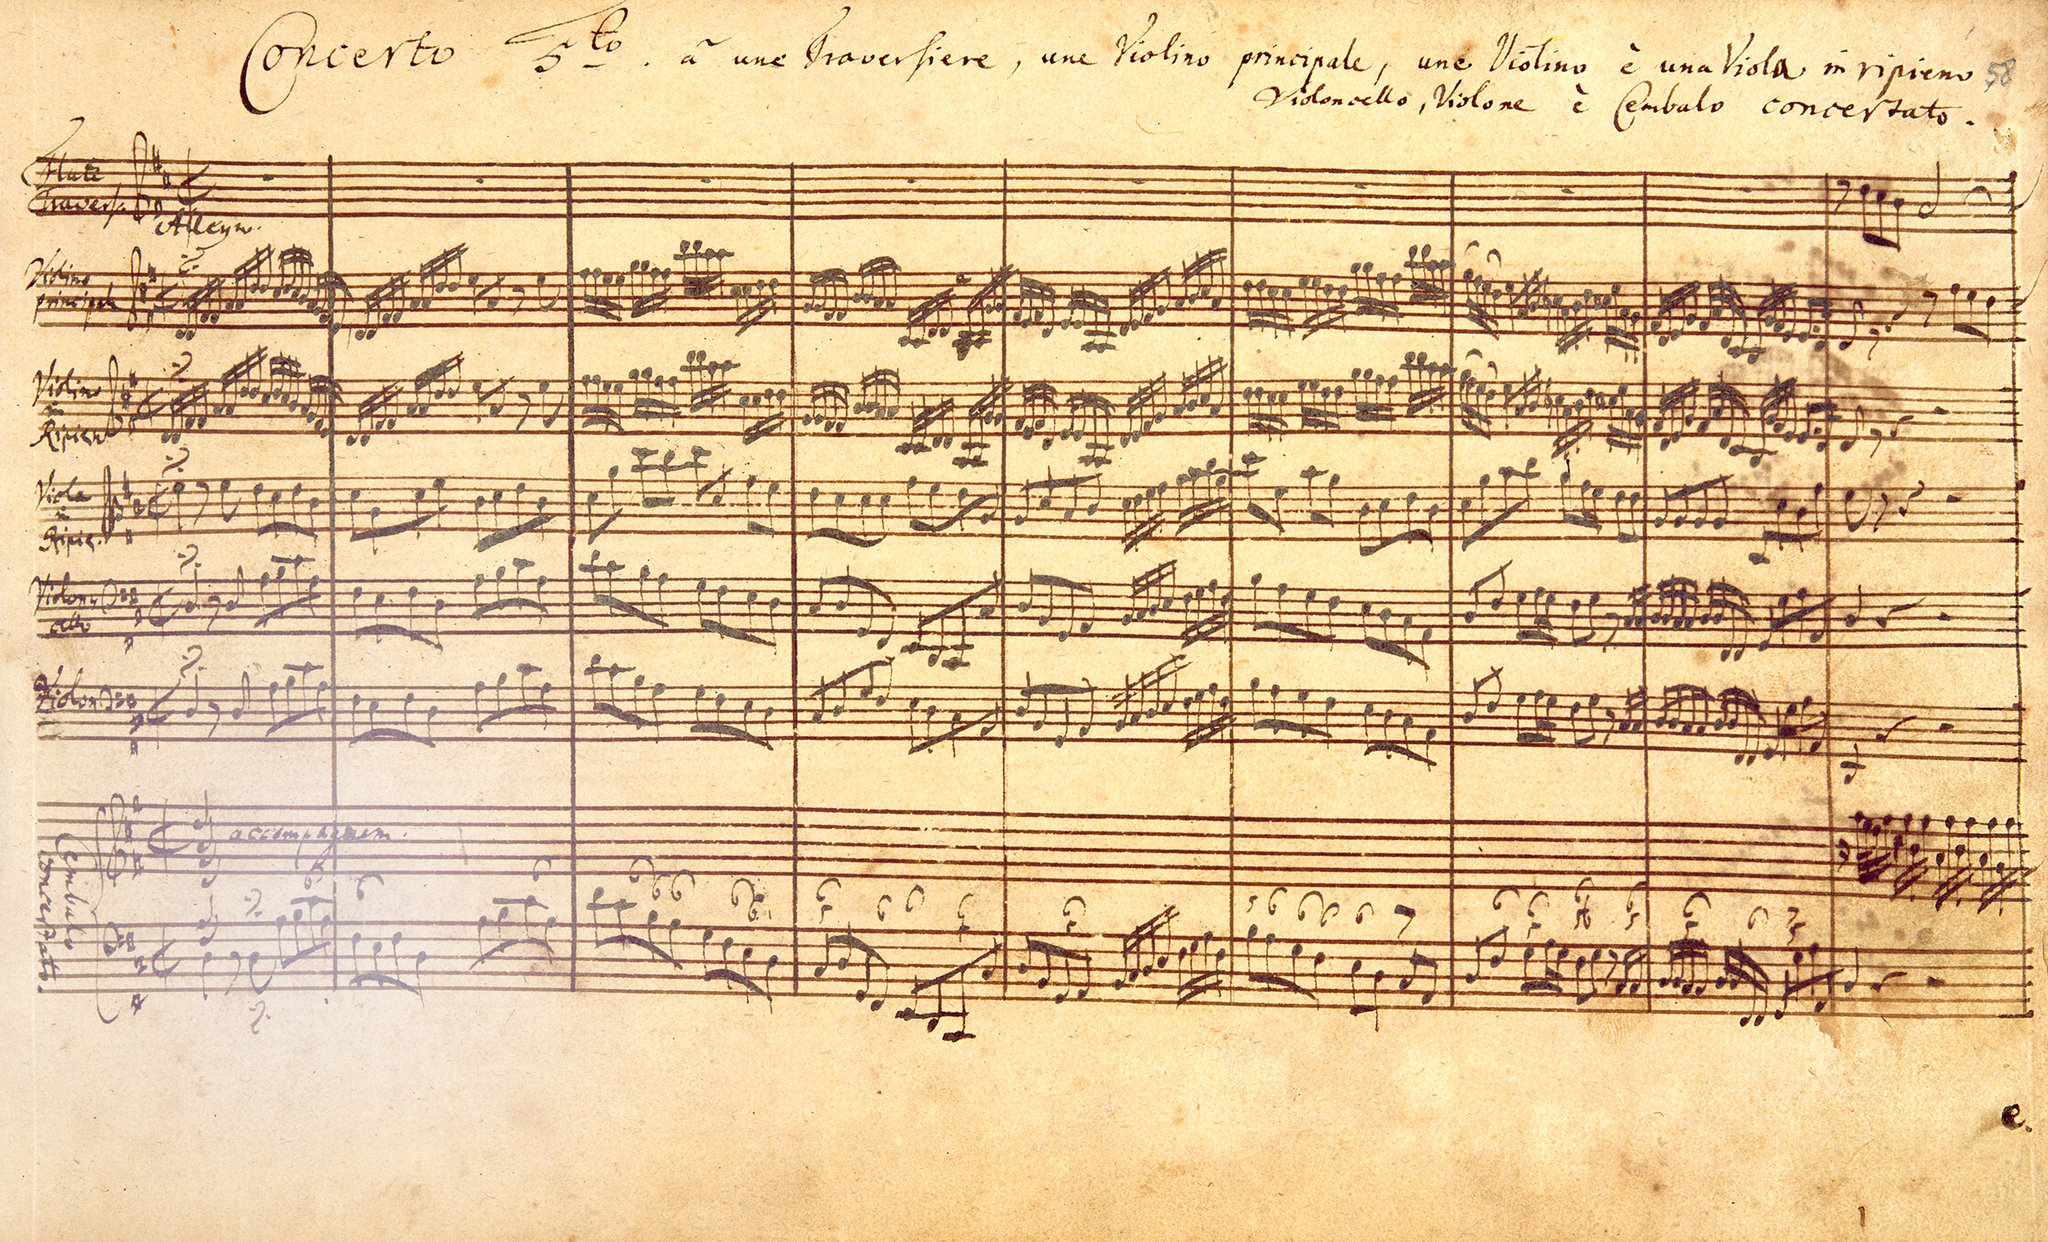 Concerto 5to. à une Traversiere, une Violino principale, une Violino è una Viola in ripieno 58
Violoncello, Violone è Cembalo concertato.
Traversa
Allegro.
Violino
principale
Violino
Ripieno
Viola
Violon
cello
Violon
accompagnem.
Cembalo
concertato.
e.